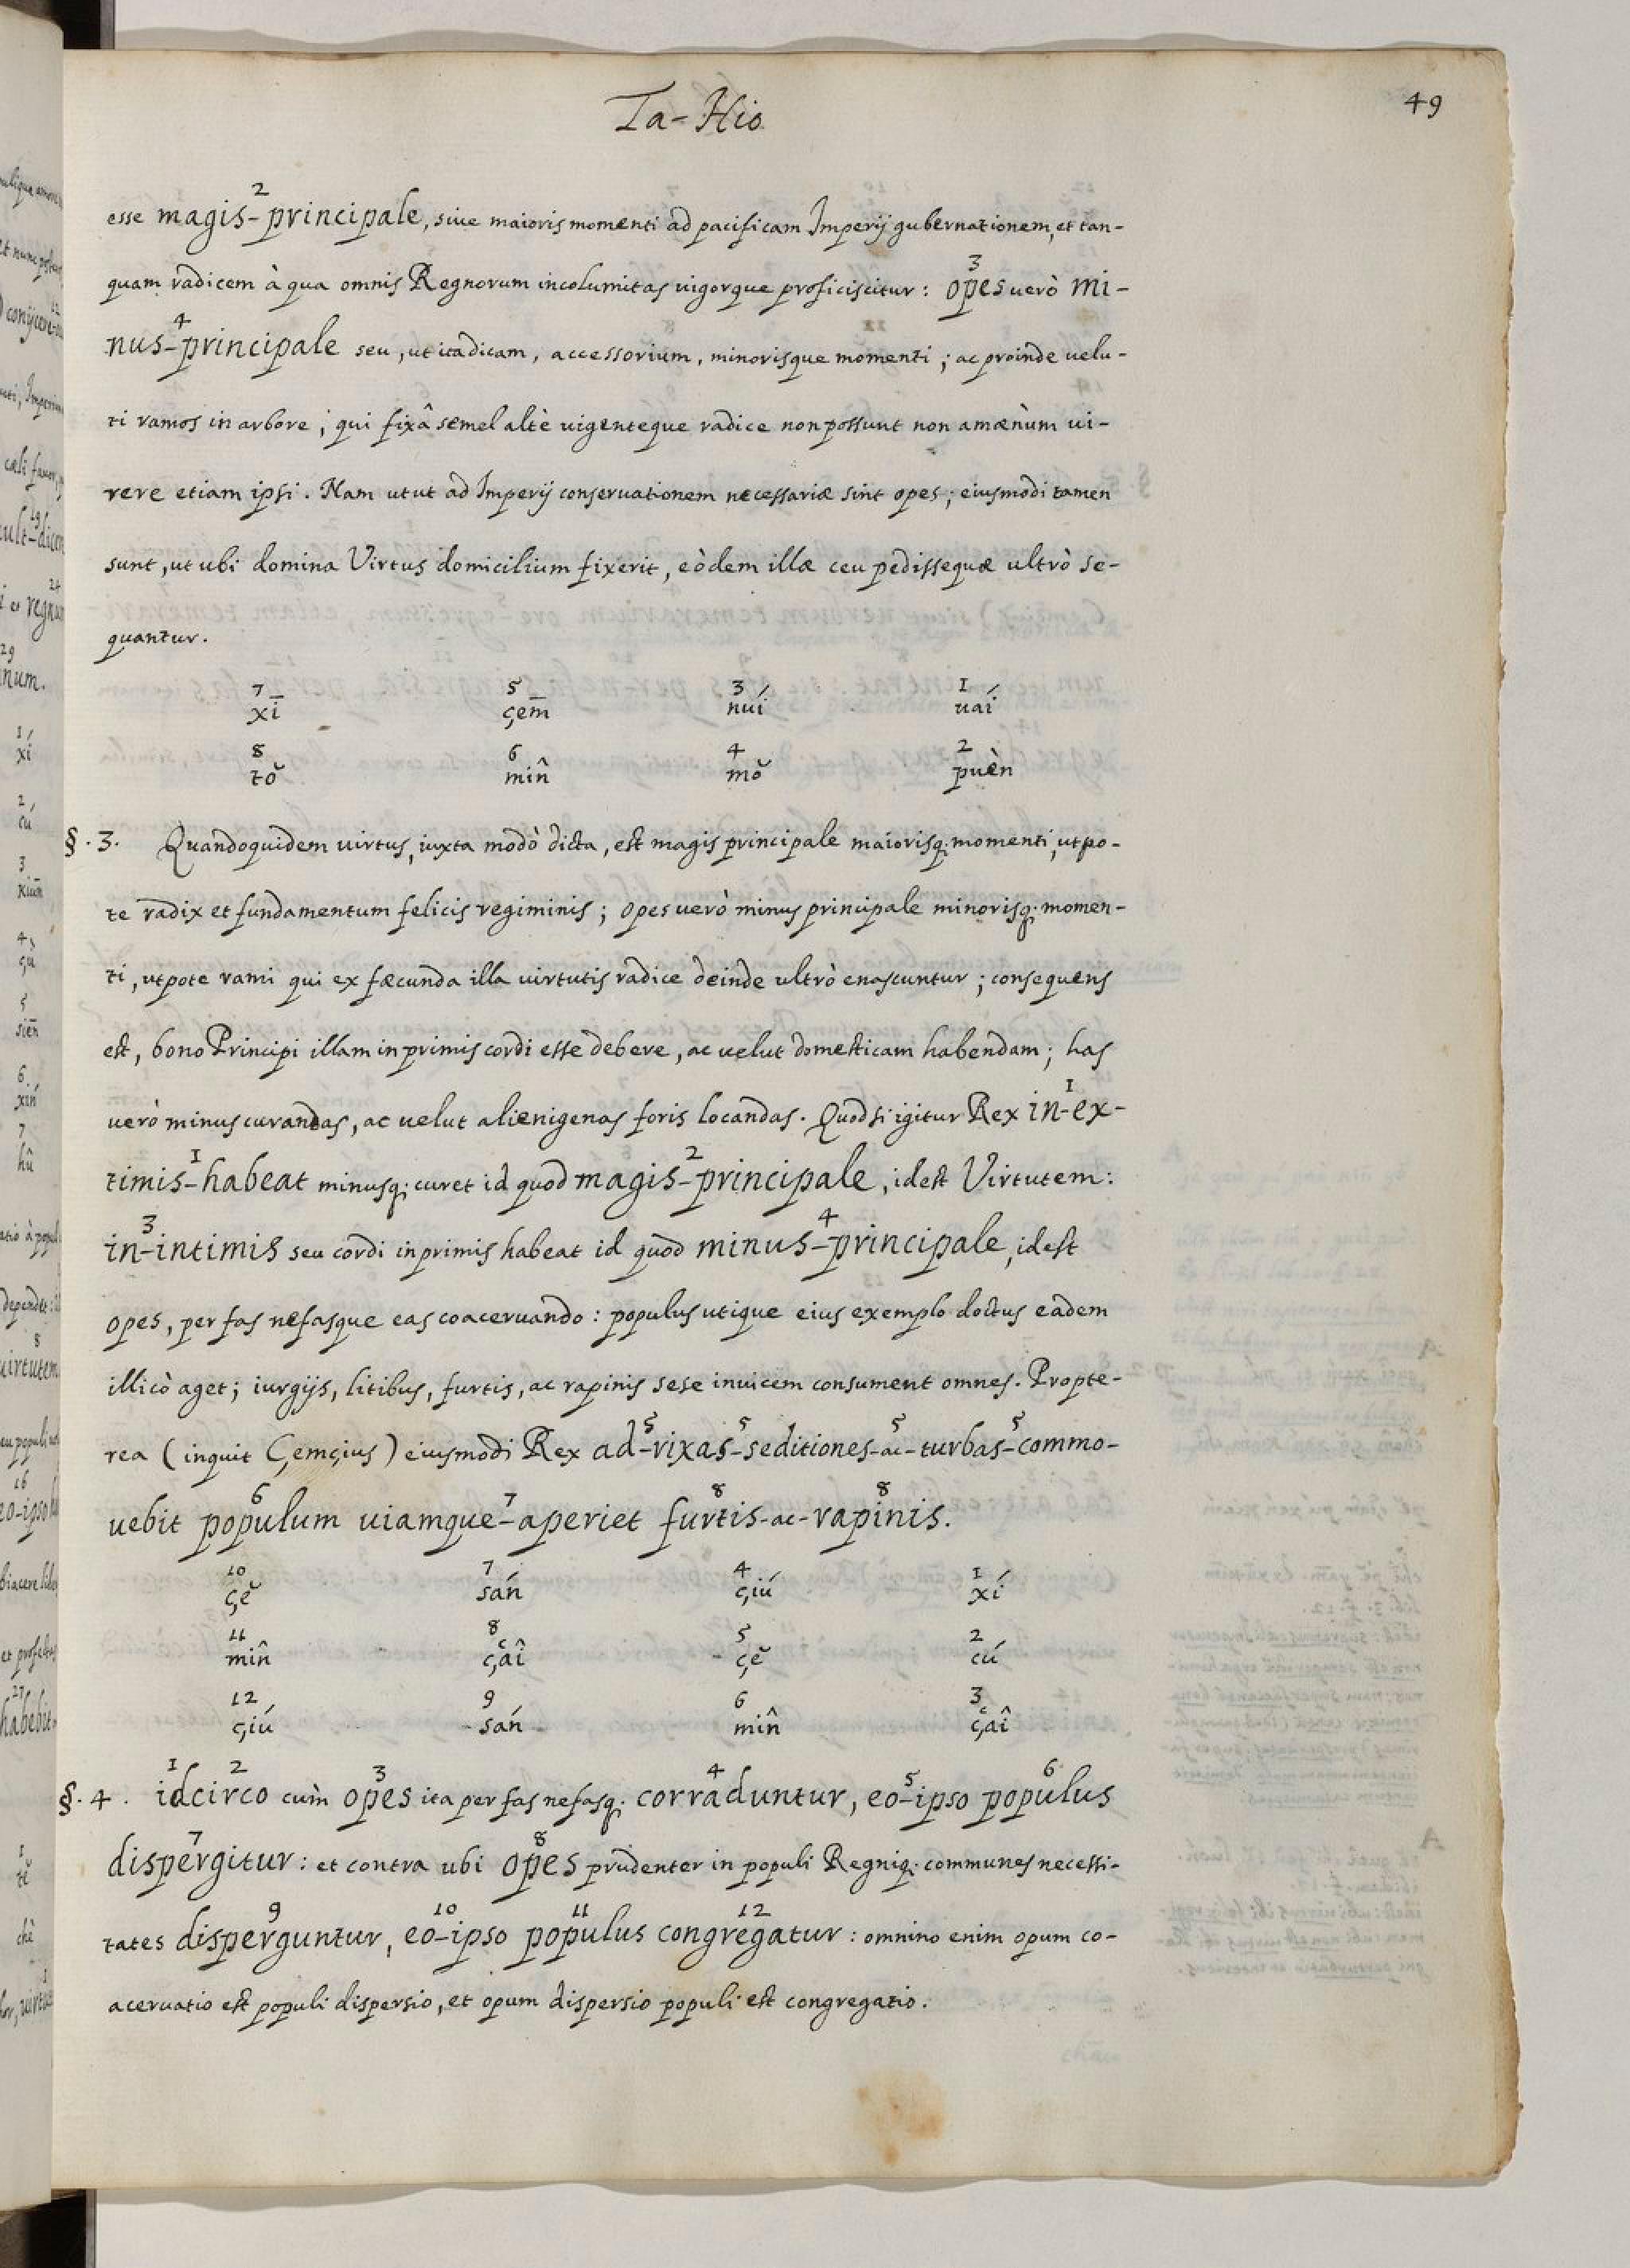 Ta-Hio
49
2
esse magis-principale, siue maioris momenti ad pacificam Imperij gubernationem, et tan-
3
quam radicem à qua omnis Regnorum incolumitas uigorque proficiscitur: opes uerò mi-
4
nus-principale seu, ut ita dicam, accessorium, minorisque momenti; ac proinde uelu-
ti ramos in arbore; qui fixâ semel altè uigenteque radice non possunt non amænùm ui-
rere etiam ipsi. Nam utut ad Imperij conseruationem necessariæ sint opes; eiusmodi tamen
sunt, ut ubi domina Virtus domicilium fixerit, eòdem illæ ceu pedissequæ ultrò se-
quantur.
7 5 3 1
xī çem̄ nuí uái
8 6 4 2
tŏ min̂ mŏ puèn
§. 3. Quandoquidem uirtus, iuxta modò dicta, est magis principale maiorisq; momenti, utpo-
te radix et fundamentum felicis regiminis; opes uerò minus principale minorisq; momen-
ti, utpote rami qui ex fæcunda illa uirtutis radice deinde ultrò enascuntur; consequens
est, bono Principi illam in primis cordi esse debere, ac uelut domesticam habendam; has
1
uerò minus curandas, ac uelut alienigenas foris locandas. Quod si igitur Rex in-ex-
1 2
timis-habeat minusq; curet id quod magis-principale, idest Virtutem:
3 4
in-intimis seu cordi in primis habeat id quod minus-principale, idest
opes, per fas nefasque eas coaceruando: populus utique eius exemplo doctus eadem
illicò aget; iurgijs, litibus, furtis, ac rapinis sese inuicem consument omnes. Propte-
5 5 5 5
rea (inquit Çemçius) eiusmodi Rex ad-rixas-seditiones-ac-turbas-commo-
6 7 8 8
uebit populum uiamque-aperiet furtis-ac-rapinis.
10 7 4 1
çĕ sán çiú xí
11 8 5 2
min̂ çâi çĕ cú
12 9 6 3
çiú sán min̂ çâi
1 2 3 4 5 6
§. 4. idcirco cùm opes ita per fas nefasq; corraduntur, eo-ipso populus
7 8
dispergitur: et contra ubi opes prudenter in populi Regniq; communes necessi-
9 10 11 12
tates disperguntur, eo-ipso populus congregatur: omnino enim opum co-
aceruatio est populi dispersio, et opum dispersio populi est congregatio.